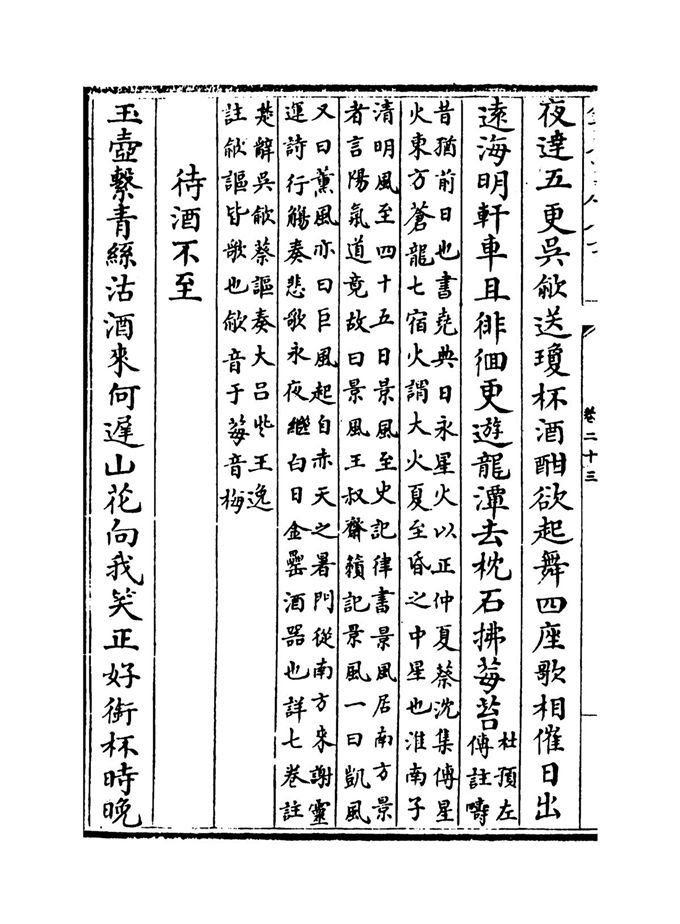 卷二十三
夜達五更吳歈送瓊杯酒酣欲起舞四座歌相催日出
遠海明軒車且徘徊更遊龍潭去枕石拂莓苔
杜預左
傳註疇
昔猶前日也書堯典日永星火以正仲夏蔡沈集傳星
火東方蒼龍七宿火謂大火夏至昏之中星也淮南子
清明風至四十五日景風至史記律書景風居南方景
者言陽氣道竟故曰景風王叔齋籟記景風一曰凱風
又曰薰風亦曰巨風起自赤天之暑門從南方來謝靈
運詩行觴奏悲歌永夜繼白日金罍酒器也詳七卷註
楚辭吳歈蔡謳奏大呂些王逸
註歈謳皆歌也歈音于莓音梅
待酒不至
玉壺繫青絲沽酒來何遲山花向我笑正好銜杯時晚